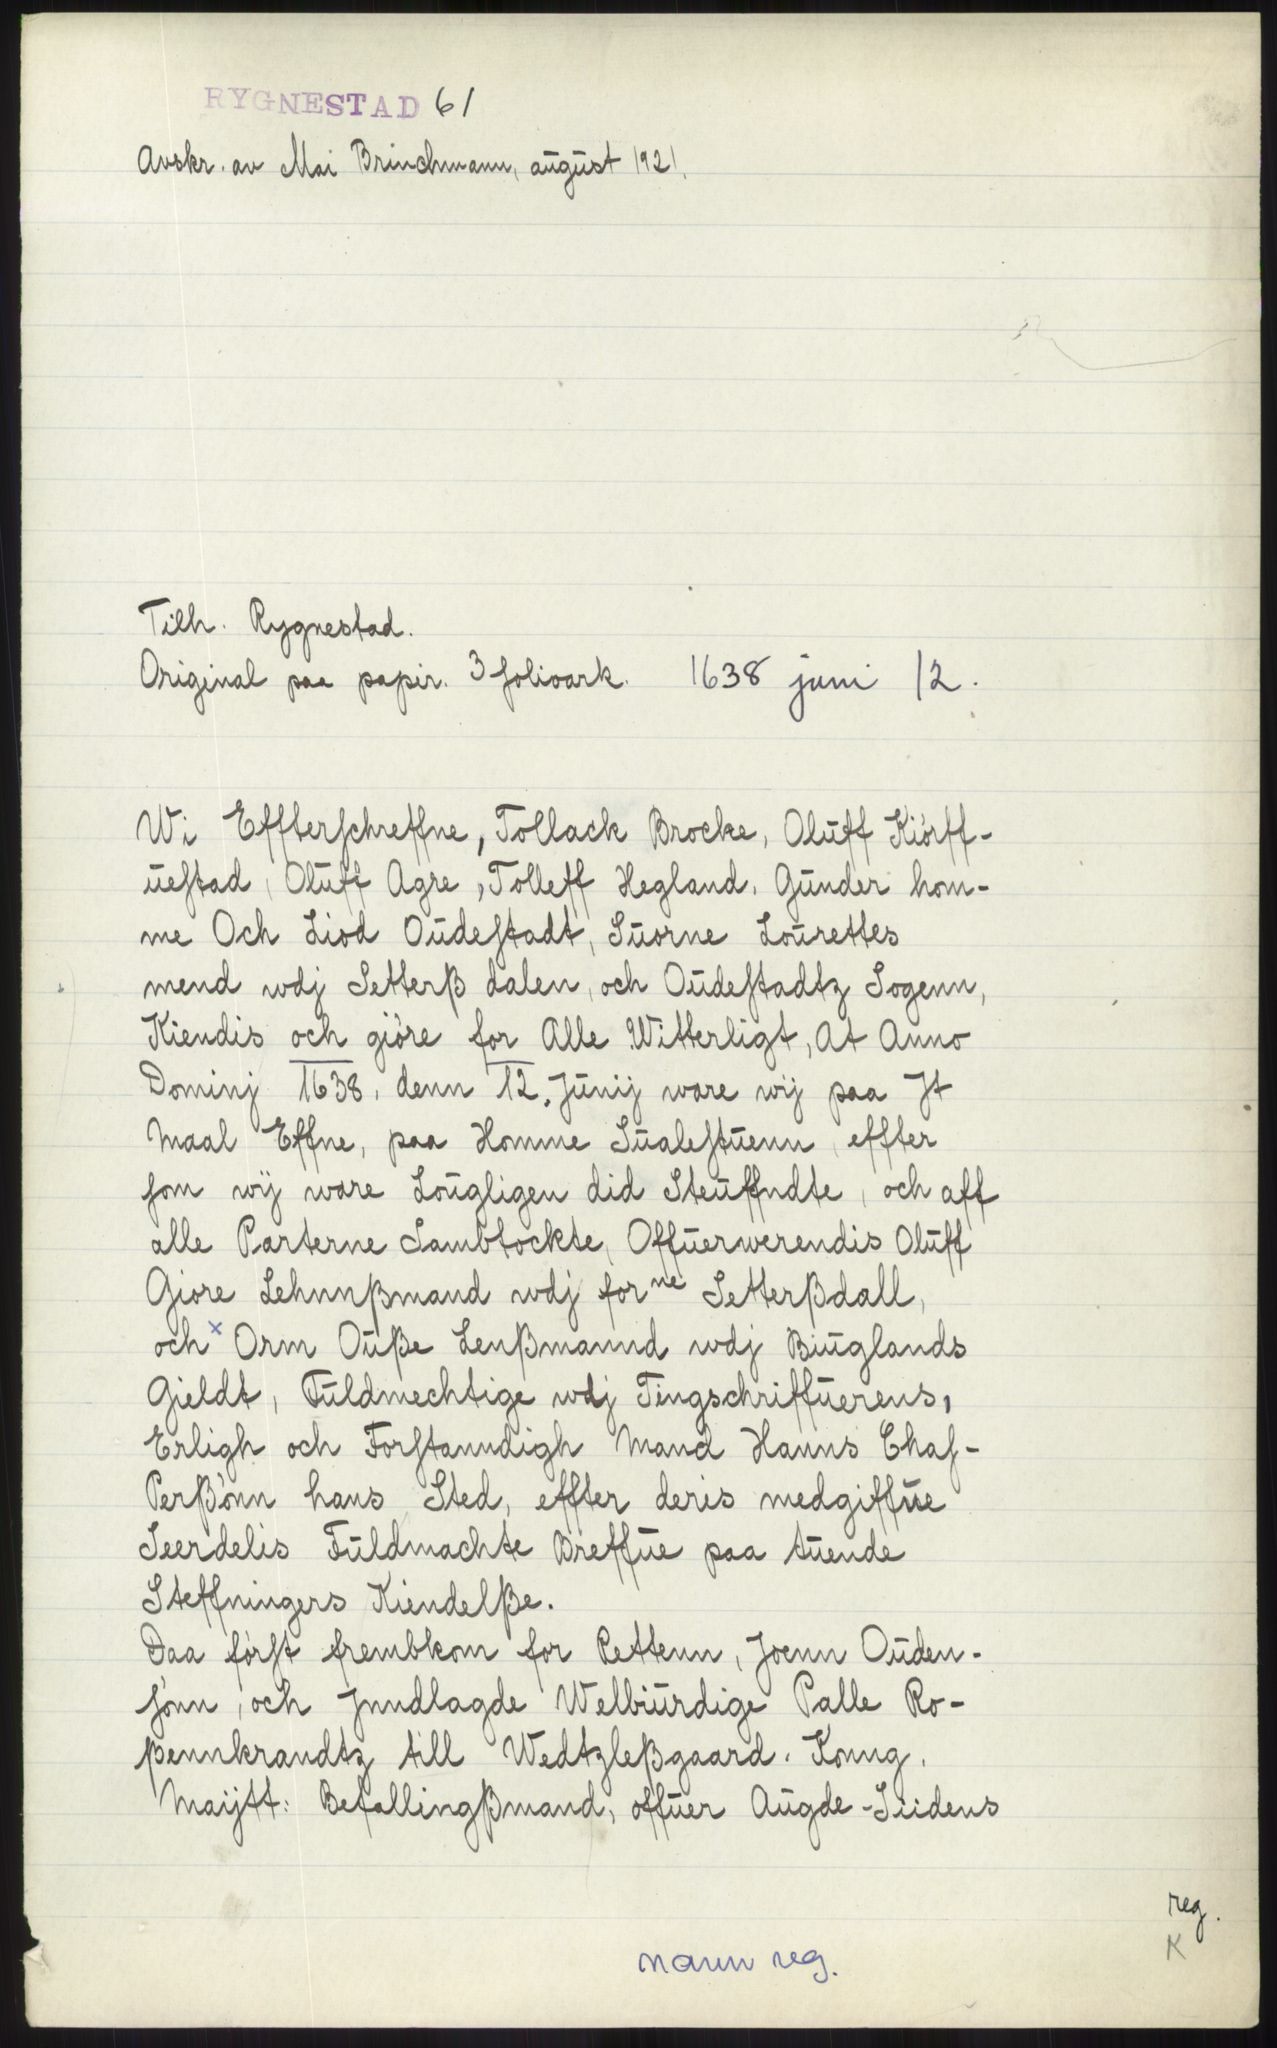 RYGNESTAD 61
Avskr. av Mai Brinchmann, august 1921.
Tilh. Rygnestad.
Original paa papir. 3 folioark. 1638 juni 12.
Wi Effterschreffne, Tollack Brocke, Oluff Kiörff-
uestad, Oluff Agre, Tolleff Hegland, Gunder hom-
me Och Liod Oudestadt, Suorne Lourettes
mend wdj Setterß dalen, och Oudestadtz Sogenn,
Kiendis och giöre for Alle Witterligt, At Anno
Dominj 1638, denn 12. Junij ware wij paa Jt
Maal Effne, paa Homme Sualestuenn, effter
som wij ware Lougligen did Steuffndte, och aff
alle Parterne Sambtockte, Offuerwerendis Oluff
Giore Lehnnßmand wdj for ne Setterßdall,
och x Orm Ouße Lenßmannd wdj Biuglands
Gieldt, Fuldmechtige wdj Tingschriffuerens,
Erligh och Forstanndigh Mand Hanns Chas-
Perßönn hans Sted, effter deris medgiffue
Seerdelis Fuldmachte Breffue paa tuende
Steffningers Kiendelße.
Daa först frembkom for Rettenn, Joenn Ouden-
sönn, och Jnndlagde Welbiurdige Palle Ro-
ßennkrandtz till Wedtzleßgaard. Konng.
Maijtt: Befallingßmand, offuer Augde-Siidens
reg.
K
navn reg.